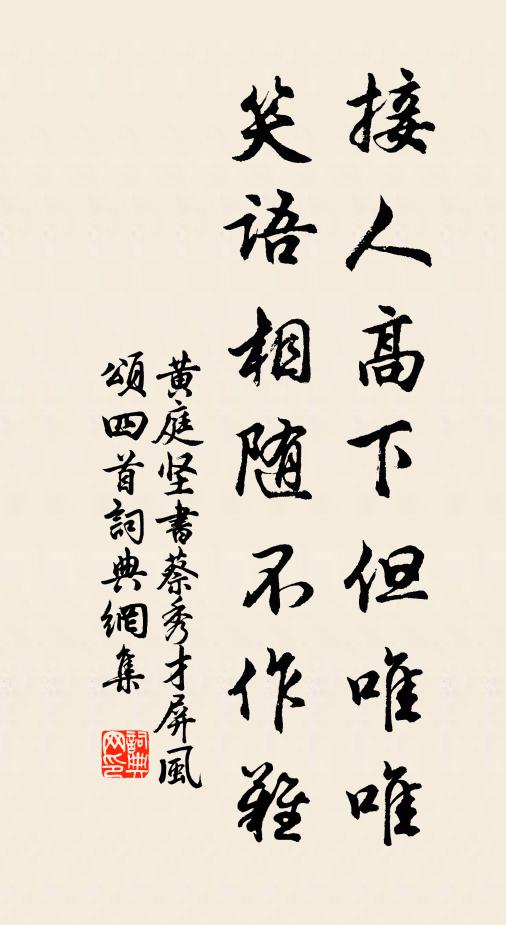 接人高下但唯唯
笑语相随不作難
黄庭坚書蔡秀才屏風
頌四首詞典網集
詞典
网印